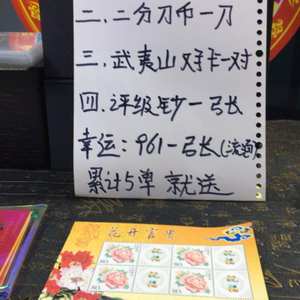 二、二分刀币一刀
三、武夷山对卡一对
四、评级钞一张
幸运：961一张(流通)
累计5单 就送
花开富贵